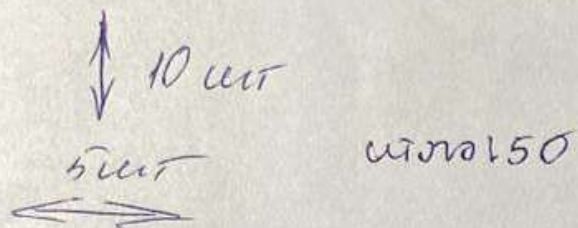 10 шт
5 шт
итого 150